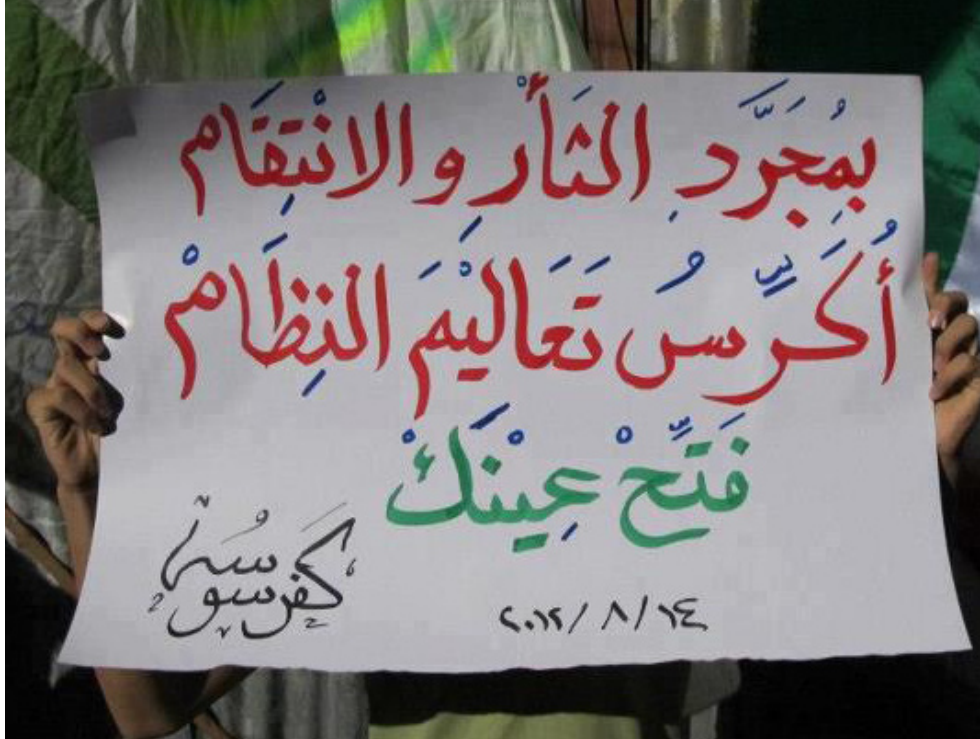 بِمُجَرَّدِ الثَأْرِ والانْتِقَام
أُكَرِّسُ تَعَاليْمَ النِظَامْ
فَتِّحْ عِيْنَكْ
كَفرسوسُة
٢٠١٢/ ٨/ ١٤